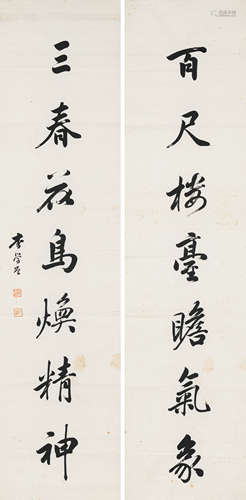 百尺樓臺瞻氣象
三春花鳥煥精神